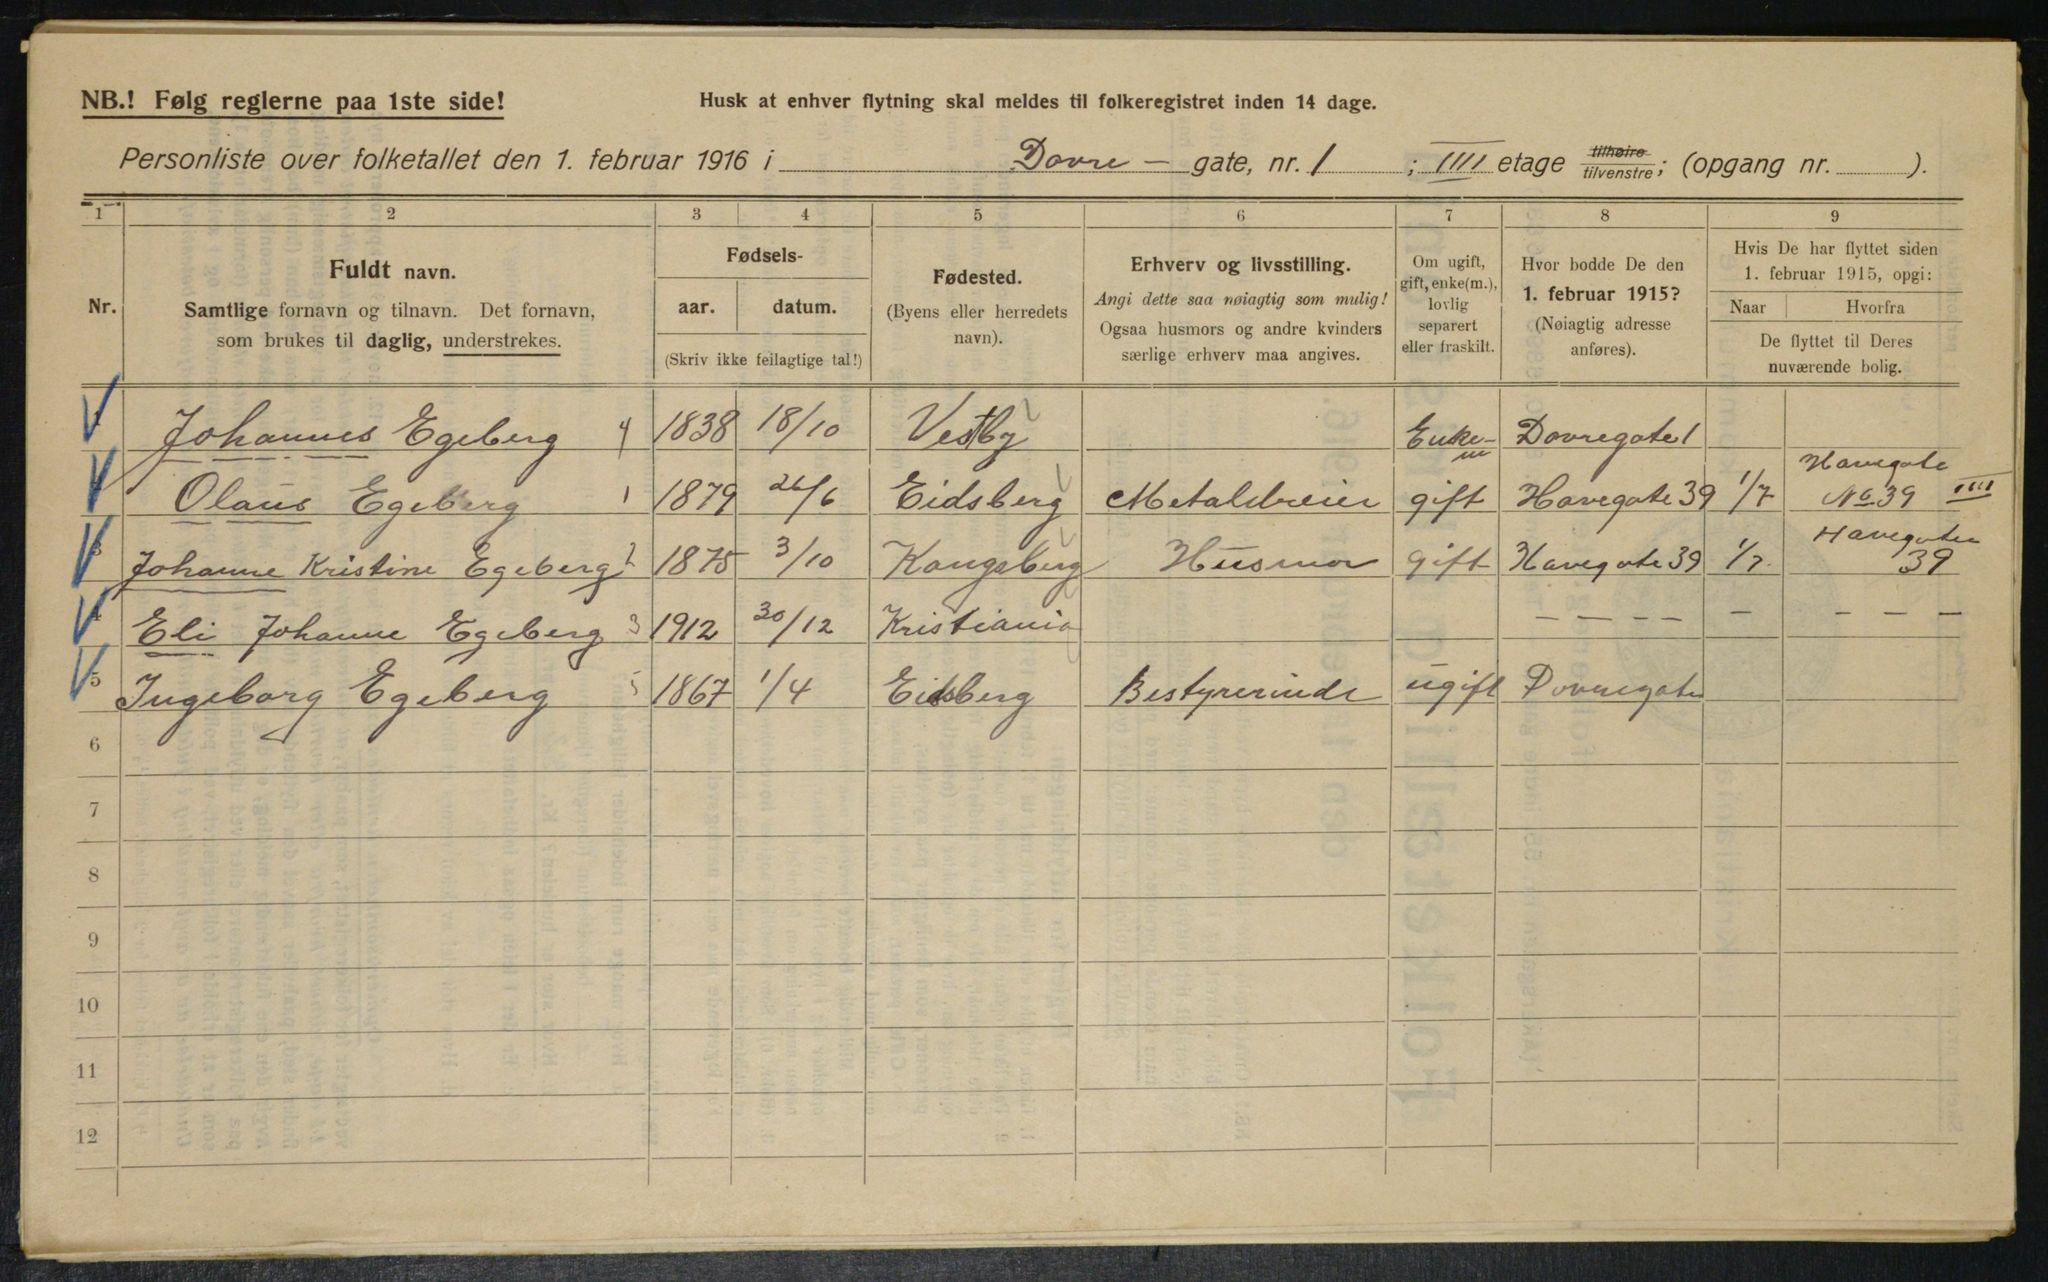 NB.! Følg reglerne paa 1ste side!
Husk at enhver flytning skal meldes til folkeregistret inden 14 dage.
Personliste over folketallet den 1. februar 1916 i Dovre - gate, nr. 1 ; IIII etage tilhøire tilvenstre; (opgang nr. ).
1 2 3 4 5 6 7 8 9
Nr.
Fuldt navn.
Samtlige fornavn og tilnavn. Det fornavn,
som brukes til daglig, understrekes.
Fødsels-
aar. datum.
(Skriv ikke feilagtige tal!)
Fødested.
(Byens eller herredets
navn).
Erhverv og livsstilling.
Angi dette saa nøiagtig som mulig!
Ogsaa husmors og andre kvinders
særlige erhverv maa angives.
Om ugift,
gift, enke(m.),
lovlig
separert
eller fraskilt.
Hvor bodde De den
1. februar 1915?
(Nøiagtig adresse
anføres).
Hvis De har flyttet siden
1. februar 1915, opgi:
Naar Hvorfra
De flyttet til Deres
nuværende bolig.
Johannes Egeberg 4 1838 18/10 Vestby Enke-m Dovregate 1
Olaus Egeberg 1 1879 26/6 Eidsberg Metaldreier gift Havegate 39 1/7 Havegate No 39 IIII
3 Johanne Kristine Egeberg 2 1875 3/10 Kongsberg Husmor gift Havegate 39 1/7. Havegaten 39
4 Eli Johanne Egeberg 3 1912 30/12 Kristiania — — — — — — — —
5 Ingeborg Egeberg 5 1867 1/4 Eidsberg Bestyrerinde ugift Dovregate
6
7
8
9
10
11
12